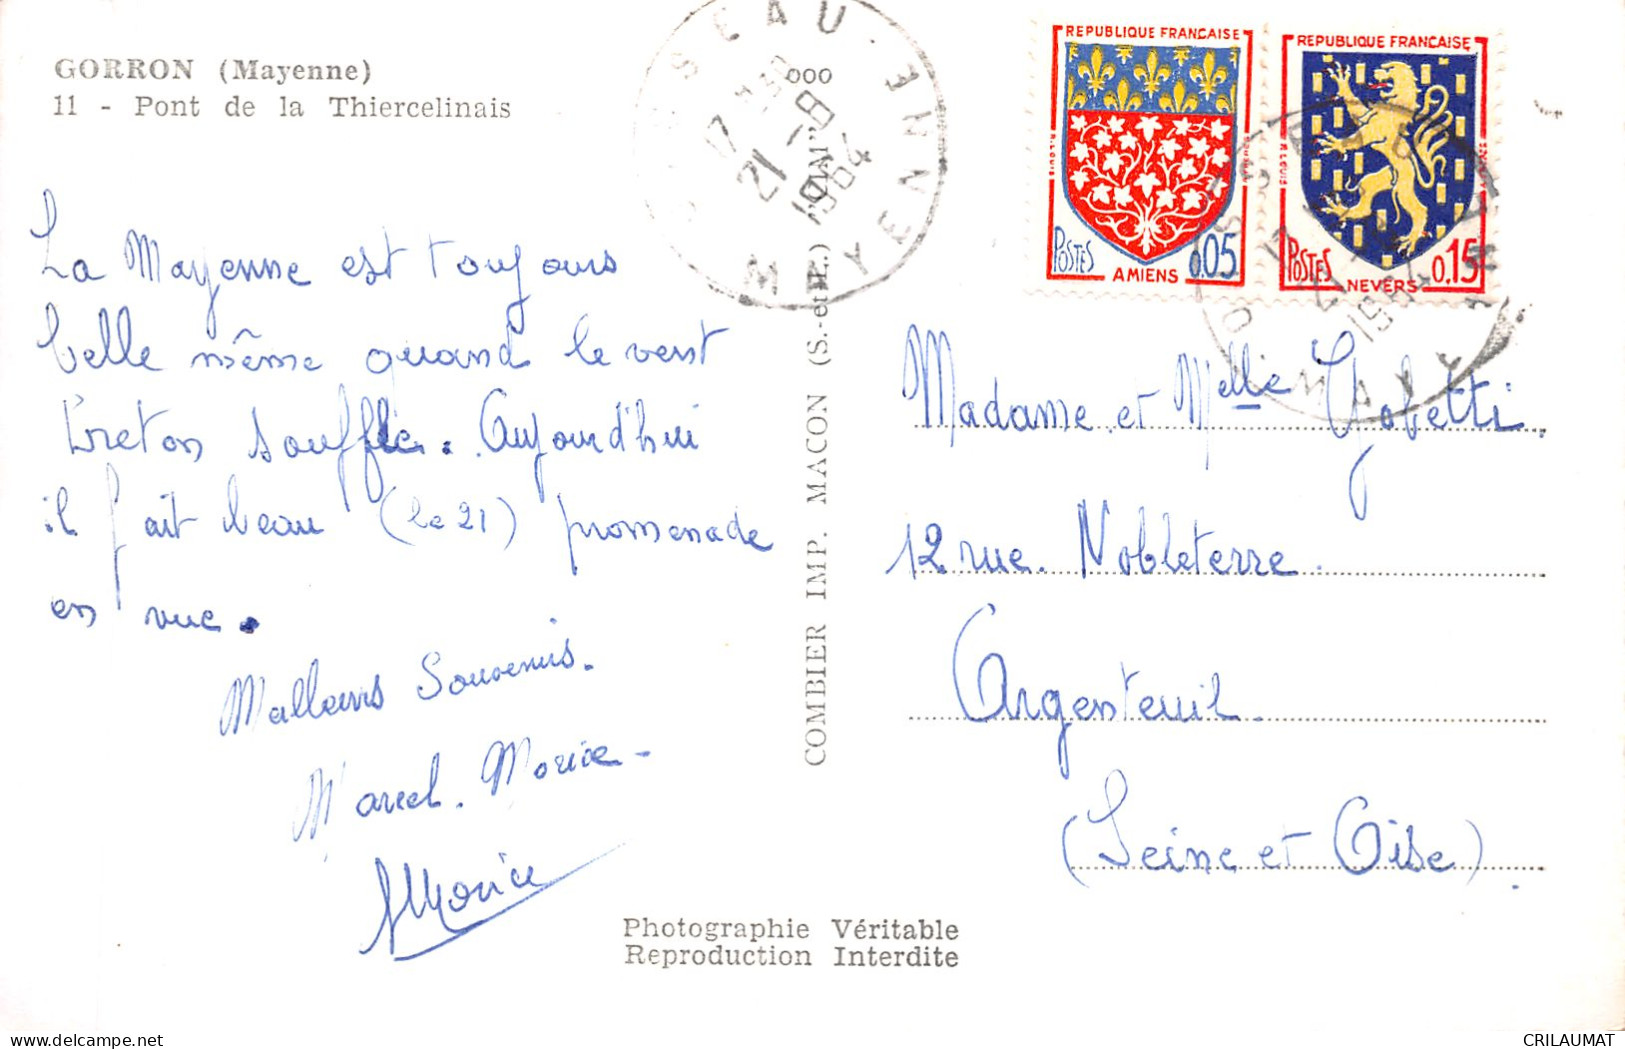 GORRON (Mayenne)
11 - Pont de la Thiercelinais
La Mayenne est toujours
belle même quand le vent
breton souffle. Aujourd'hui
il fait beau (le 21) promenade
en vue.
Meilleurs Souvenirs.
Marcel. Morice -
Morice
COMBIER IMP. MACON (S.-et-L.) "CIM"
Photographie Véritable
Reproduction Interdite
21 - 8
1964
MAYENNE
REPUBLIQUE FRANÇAISE
POSTES
0.05
AMIENS
REPUBLIQUE FRANÇAISE
POSTES
0.15
NEVERS
1964
Madame et Melle Yobetti.
12 rue. Nobleterre.
Argenteuil.
(Seine et Oise).
CRILAUMAT